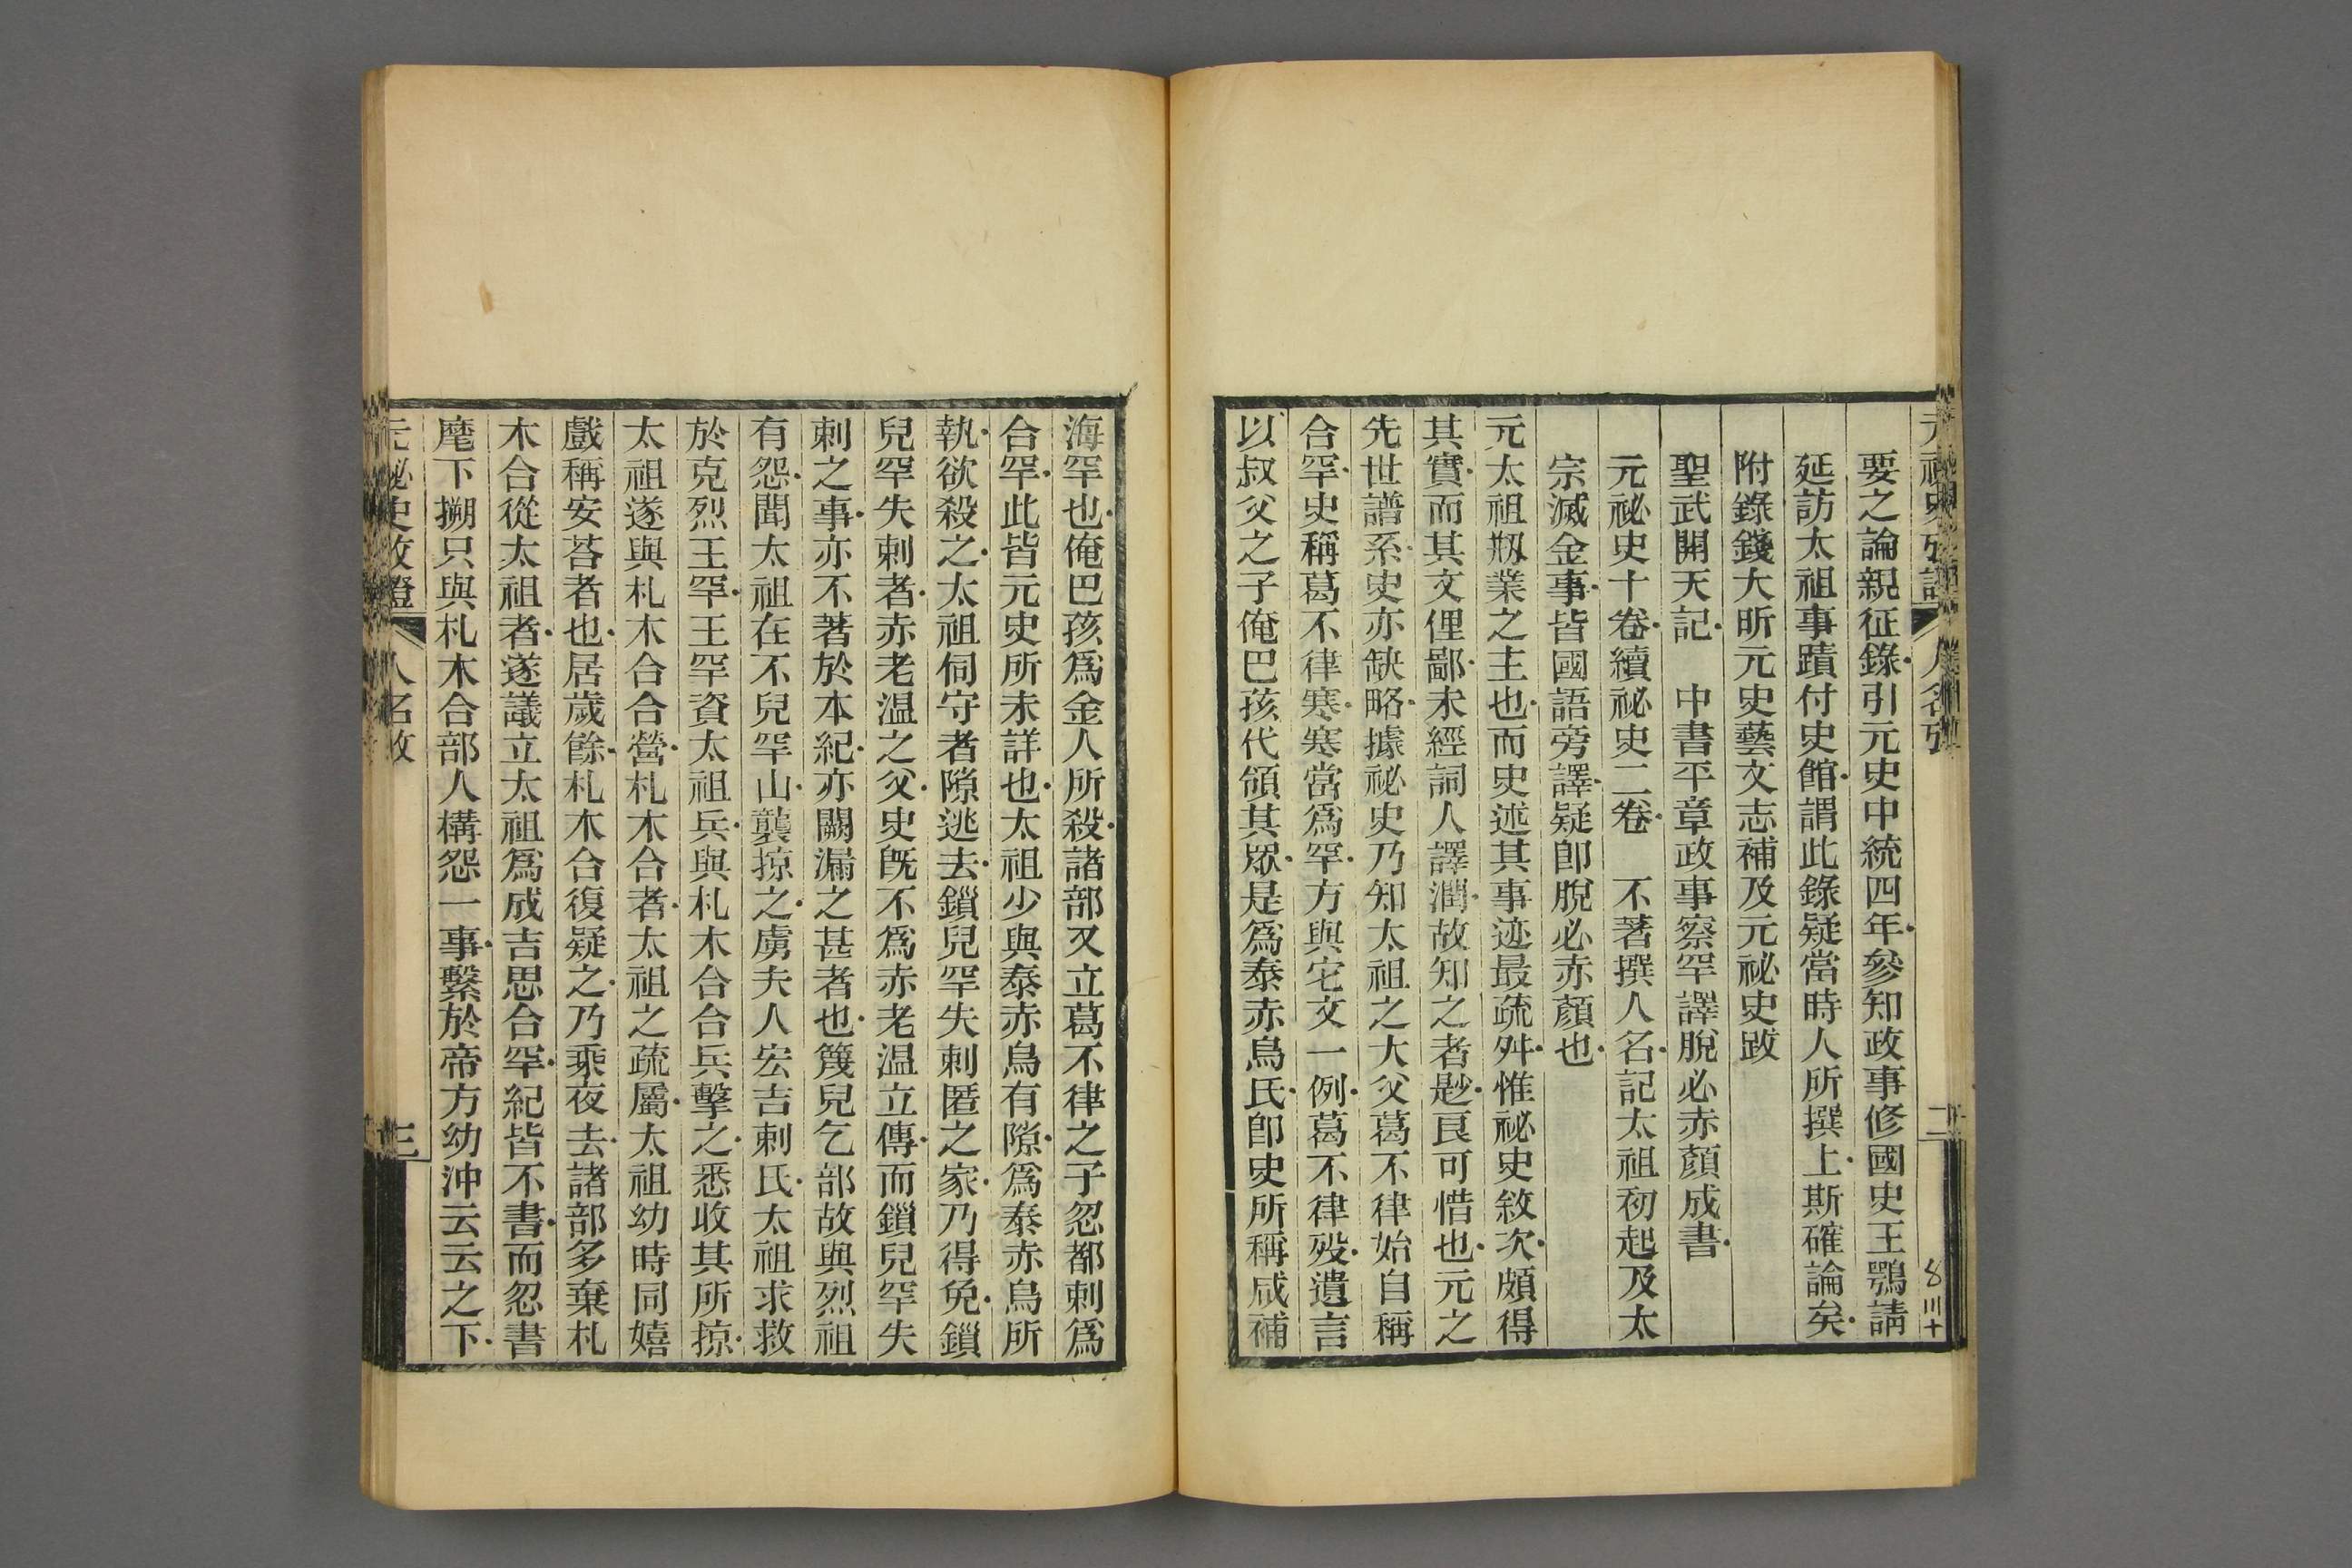 要之論親征錄引元史中統四年參知政事修國史王鶚請
延訪太祖事蹟付史館謂此錄疑當時人所撰上斯確論矣
附錄錢大昕元史藝文志補及元祕史跋
聖武開天記　中書平章政事察罕譯脫必赤顏成書
元祕史十卷續祕史二卷　不著撰人名記太祖初起及太
宗滅金事皆國語旁譯疑卽脫必赤顏也
元太祖剏業之主也而史述其事迹最疏舛惟祕史敘次頗得
其實而其文俚鄙未經詞人譯潤故知之者尟良可惜也元之
先世譜系史亦缺略據祕史乃知太祖之大父葛不律始自稱
合罕史稱葛不律寒寒當爲罕方與它文一例葛不律歿遺言
以叔父之子俺巴孩代領其眾是爲泰赤烏氏卽史所稱咸補
海罕也俺巴孩爲金人所殺諸部又立葛不律之子忽都剌爲
合罕此皆元史所未詳也太祖少與泰赤烏有隙爲泰赤烏所
執欲殺之太祖伺守者隙逃去鎖兒罕失剌匿之家乃得免鎖
兒罕失剌者赤老溫之父史旣不爲赤老溫立傳而鎖兒罕失
剌之事亦不著於本紀亦闕漏之甚者也篾兒乞部故與烈祖
有怨聞太祖在不兒罕山襲掠之虜夫人宏吉剌氏太祖求救
於克烈王罕王罕資太祖兵與札木合合兵擊之悉收其所掠
太祖遂與札木合合營札木合者太祖之疏屬太祖幼時同嬉
戲稱安荅者也居歲餘札木合復疑之乃乘夜去諸部多棄札
木合從太祖者遂議立太祖爲成吉思合罕紀皆不書而忽書
麾下搠只與札木合部人構怨一事繫於帝方幼沖云云之下
元祕史攷證　人名攷　三